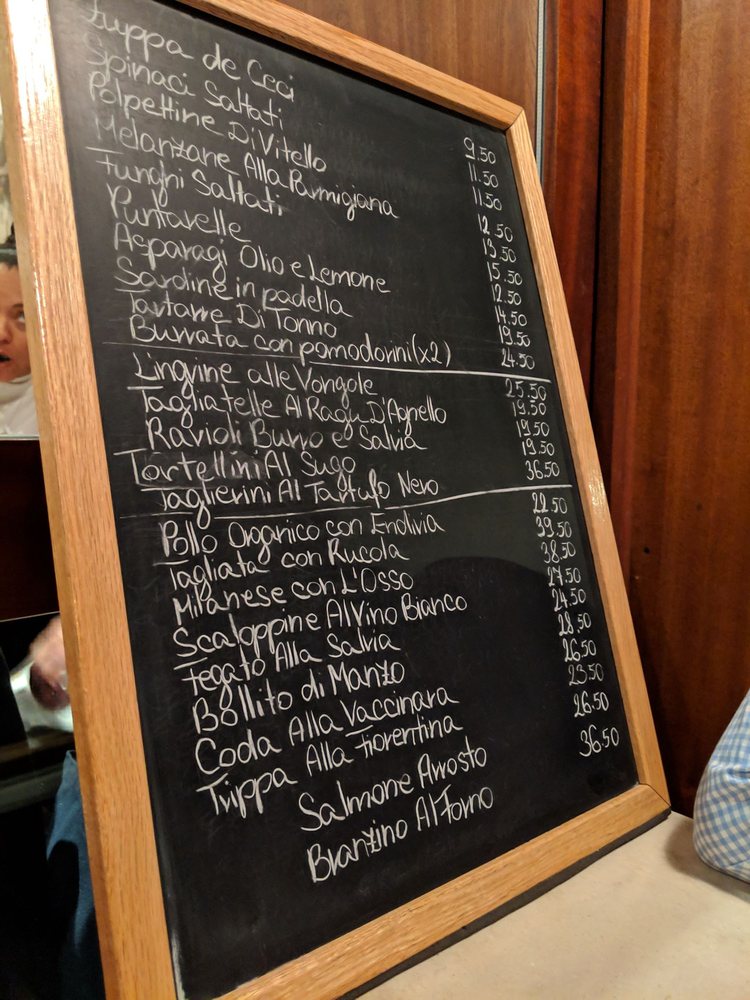 Zuppa de Ceci 9.50
Spinaci Saltati 11.50
Polpettine Di Vitello 11.50
Melanzane Alla Parmigiana 12.50
Funghi Saltati 13.50
Puntarelle 15.50
Asparagi Olio e Lemone 12.50
Sardine in padella 14.50
Tartare Di Tonno 19.50
Burrata con pomodorini (x2) 24.50
Lingine alle Vongole 25.50
Tagliatelle Al Ragu D'Agnello 19.50
Ravioli Burro e Salvia 19.50
Tortellini Al Sugo 19.50
Taglierini Al Tartufo Nero 36.50
Pollo Organico con Endivia 22.50
Tagliata con Rucola 39.50
Milanese con L'Osso 38.50
Scaloppine Al Vino Bianco 27.50
Fegato Alla Salvia 24.50
Bollito di Manzo 28.50
Coda Alla Vaccinara 26.50
Trippa Alla Fiorentina 23.50
Salmone Arrosto 26.50
Branzino Al Forno 36.50